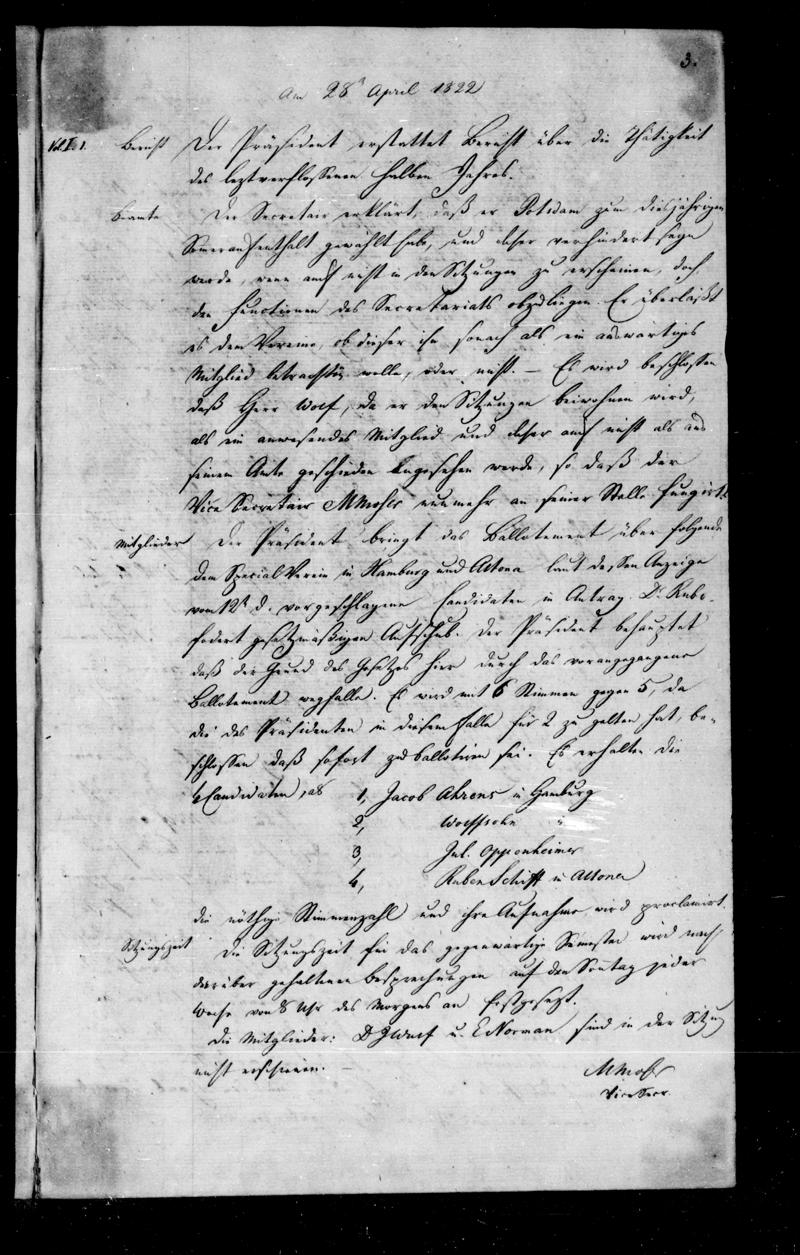 3.
Am 28t April 1822
Vol. I. 1. Bericht Der Präsident erstattet Bericht über die Thätigkeit
des letztverflossenen halben Jahres.
Beamte Der Secretair erklärt, daß er Potsdam zum diesjährigen
Sommeraufenthalt gewählt habe, und daher verhindert seyn
werde, wenn auch nicht in den Sitzungen zu erscheinen, doch
den Functionen des Secretariats obzuliegen. Er überläßt
es dem Vereine, ob dieser ihn sonach als ein auswärtiges
Mitglied betrachten wolle, oder nicht. – Es wird beschlossen
daß Herr Wolf, da er den Sitzungen beiwohnen wird,
als ein anwesendes Mitglied und daher auch nicht als aus
seinem Amte geschieden angesehen werde, so daß der
Vice Secretair MMoser nunmehr an seiner Stelle fungirt.
Mitglieder Der Präsident bringt das Ballotement über folgende
dem Special Verein in Hamburg und Altona laut dessen Anzeige
vom 12t d. vorgeschlagene Candidaten in Antrag. Dr Rubo
fodert gesetzmäßigen Aufschub. Der Präsident behauptet
daß der Grund des Gesetzes hier durch das vorangegangene
Ballotement wegfalle. Es wird mit 6 Stimmen gegen 5, da
die des Präsidenten in diesem Falle für 2 zu gelten hat, be-
schlossen daß sofort zu ballotiren sei. Es erhalten die
4 Candidaten, als 1, Jacob Ahrens in Hamburg
2, Wolffsohn "
3, Jul. Oppenheimer
4, Ruben Schiff in Altona
die nöthige Stimmenzahl und ihre Aufnahme wird proclamirt.
Sitzungszeit Die Sitzungszeit für das gegenwärtige Semester wird nach
darüber gehaltenen Besprechungen auf den Sontag jeder
Woche von 8 Uhr des Morgens an festgesetzt.
Die Mitglieder: D JWolf u. E Norman sind in der Sitzung
nicht erschienen. –
MMoser
Vice Secr.